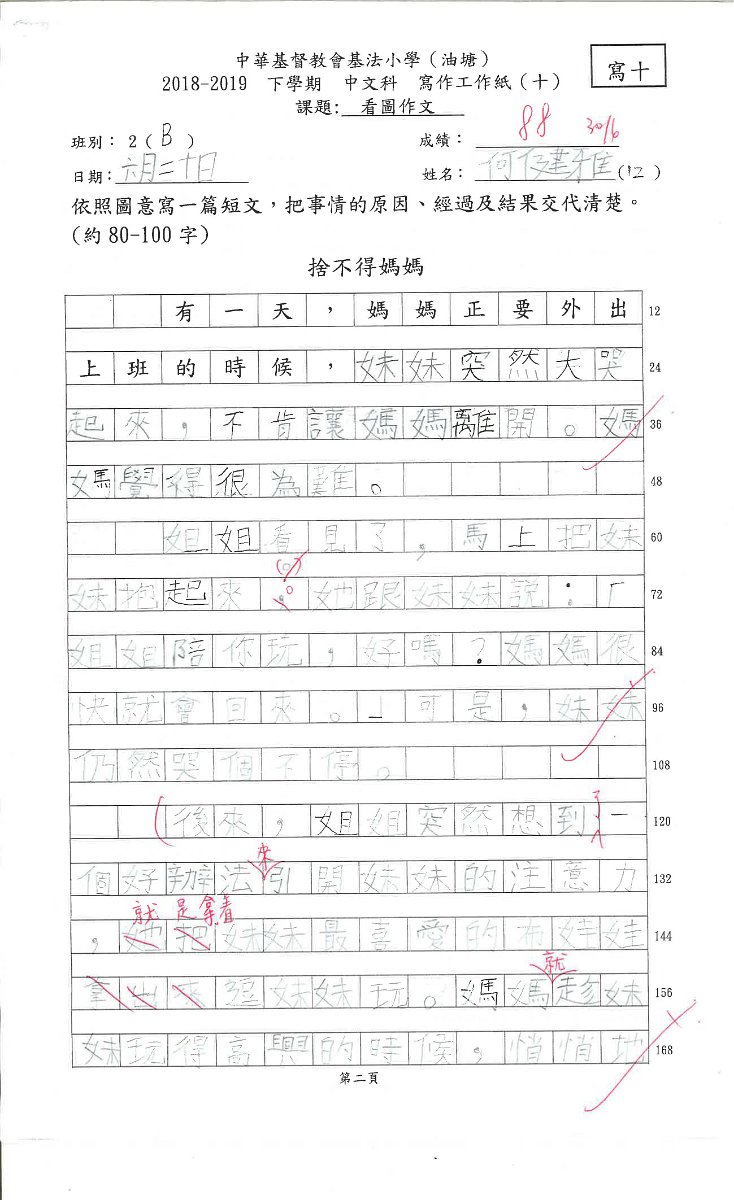 中華基督教會基法小學（油塘）
寫十
2018-2019 下學期 中文科 寫作工作紙（十）
課題：看圖作文
88 30/6
班別：2（B） 成績：
日期：六月二十日 姓名：何建雅（12）
依照圖意寫一篇短文，把事情的原因、經過及結果交代清楚。
（約80-100字）
捨不得媽媽
有一天，媽媽正要外出 12
上班的時候，妹妹突然大哭 24
起來，不肯讓媽媽離開。媽 36
媽覺得很為難。 48
姐姐看見了，馬上把妹 60
妹抱起來。她跟妹妹說：「 72
姐姐陪你玩，好嗎？媽媽很 84
快就會回來。」可是，妹妹 96
仍然哭個不停。 108
後來，姐姐突然想到了一 120
個好辦法來引開妹妹的注意力 132
就是拿着
，她把妹妹最喜愛的布娃娃 144
就
拿出來逗妹妹玩。媽媽趁妹 156
妹玩得高興的時候，悄悄地 168
第二頁